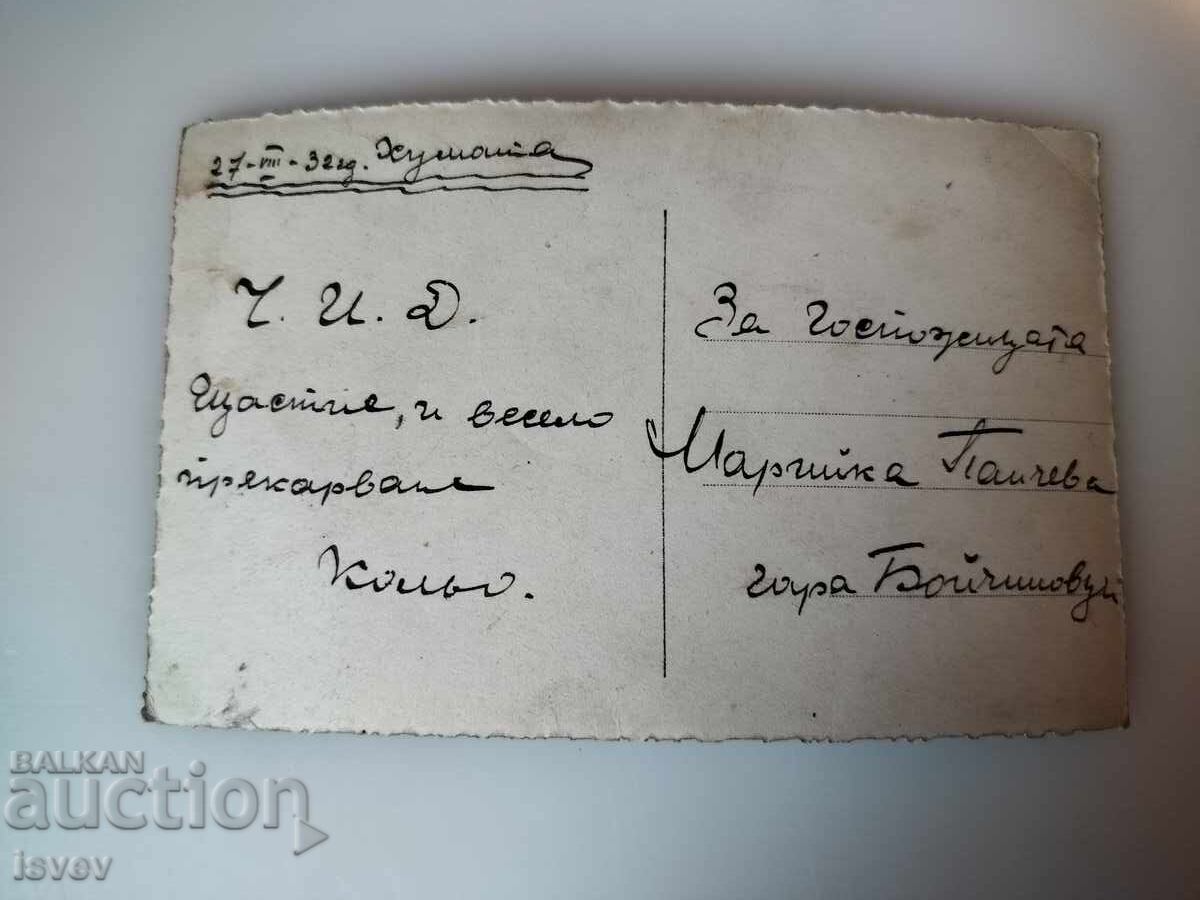 27-VIII-32 год. Хумата
Ч. И. Д.
Щастие, и весело
прекарване
Кольо.
За Госпожицата
Марийка Панчева
гара Бойчиновци
BALKAN
auction
isvev